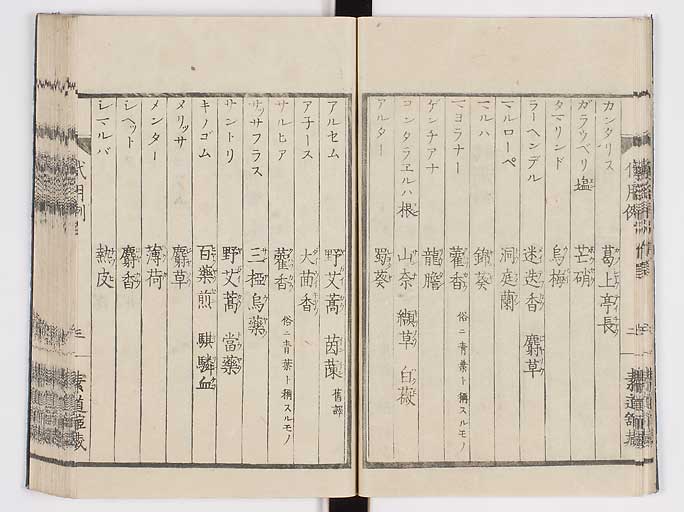 カンタリス 葛上亭長
ガラウベリ塩 芒硝
タマリンド 烏梅
ラーヘンデル 迷迭香 麝草
マルローペ 洞庭蘭
マルハ 錦葵
マヨラナー 藿香 俗ニ青葉ト稱スルモノ
ゲンチアナ 龍膽
コンタラヱルハ根 山奈 纈草 白薇
アルター 蜀葵
アルセム 野艾蒿 茵蔯 舊譯
アネース 大茴香
サルヒア 藿香 俗ニ青葉ト稱スルモノ
サッサフラス 三極烏藥
サントリ 野艾蒿 當藥
キノゴム 百藥煎 騏驎血
メリッサ 麝草
メンター 薄荷
シヘット 麝香
シマルバ 秦皮
代用例
三
素道館蔵